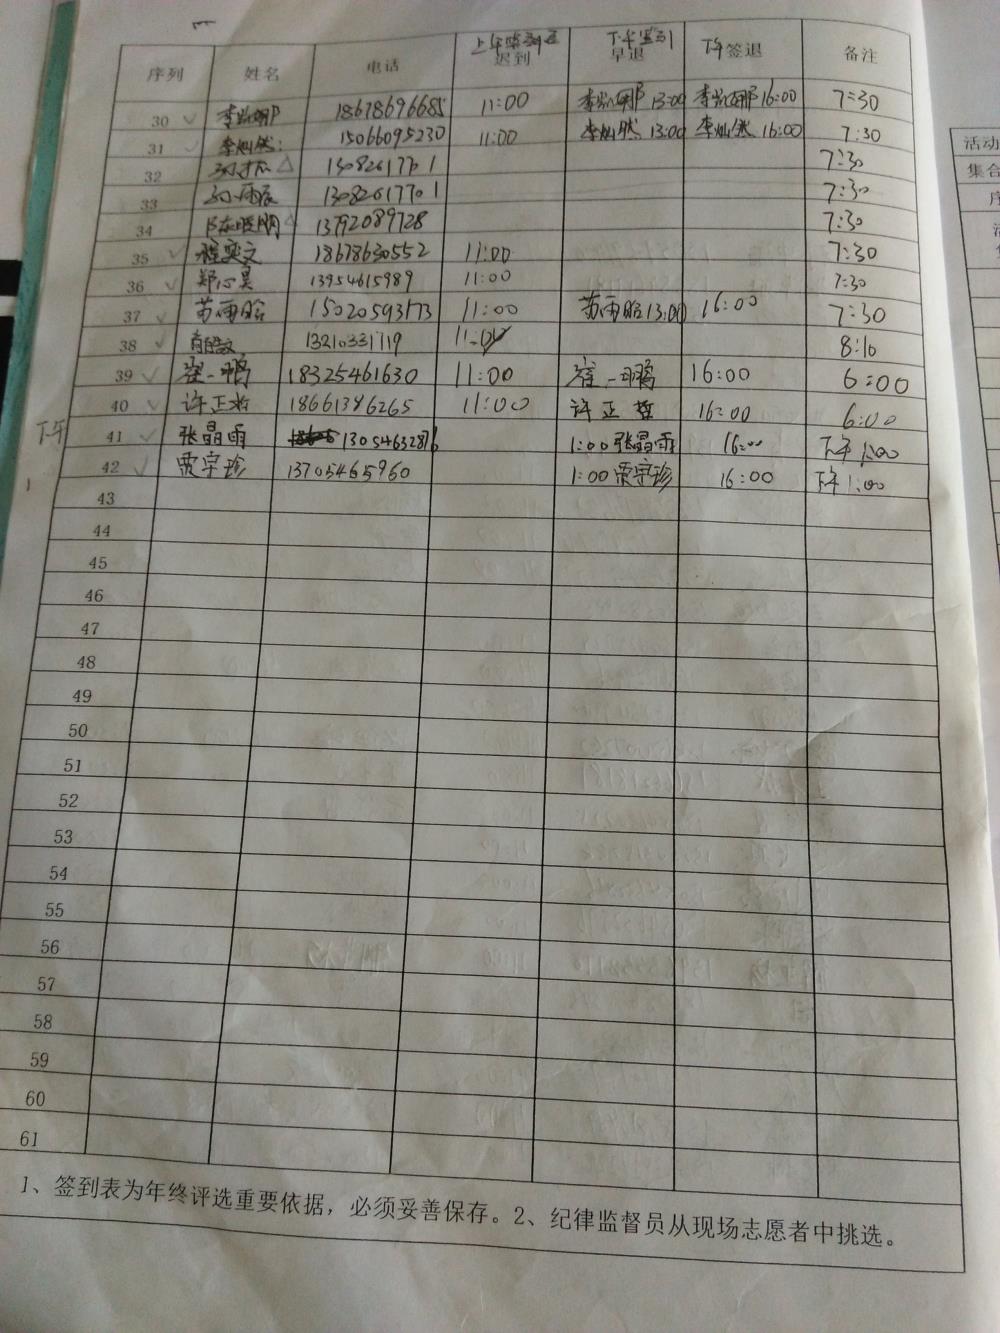 序列 姓名 电话 上午签到 迟到 下午签到 早退 下午签退 备注
30 李 娜 18678696685 11:00 李 娜 13:00 李 娜 16:00 7:30
31 李灿然 15066095230 11:00 李灿然 13:00 李灿然 16:00 7:30
32 7:30
33 13082617701 7:30
34 陈晓朋 13792089728 7:30
35 程奕文 18678630552 11:00 7:30
36 郑心昊 13954615989 11:00 7:30
37 苏雨晗 15020593173 11:00 苏雨晗 13:00 16:00 7:30
38 13210331719 8:10
39 崔一鹏 18325461630 11:00 崔一鹏 16:00 6:00
40 许正哲 18661386265 11:00 许正哲 16:00 6:00
下午
41 张晶雨 13054632876 1:00 张晶雨 16:00 下午 1:00
42 贾宇珍 13705465960 1:00 贾宇珍 16:00 下午 1:00
43
44
45
46
47
48
49
50
51
52
53
54
55
56
57
58
59
60
61
1、签到表为年终评选重要依据，必须妥善保存。2、纪律监督员从现场志愿者中挑选。
活动
集合